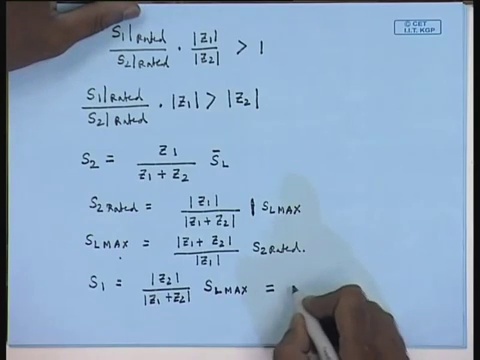 © CET
I.I.T. KGP
S1|Rated / S2|Rated · |Z1| / |Z2| > 1
S1|Rated / S2|Rated · |Z1| > |Z2|
S2 = Z1 / Z1 + Z2 S̄L
S2 Rated = |Z1| / |Z1 + Z2| | SLMAX
SLMAX = |Z1 + Z2| / |Z1| S2 Rated.
S1 = |Z2| / |Z1 + Z2| SLMAX =